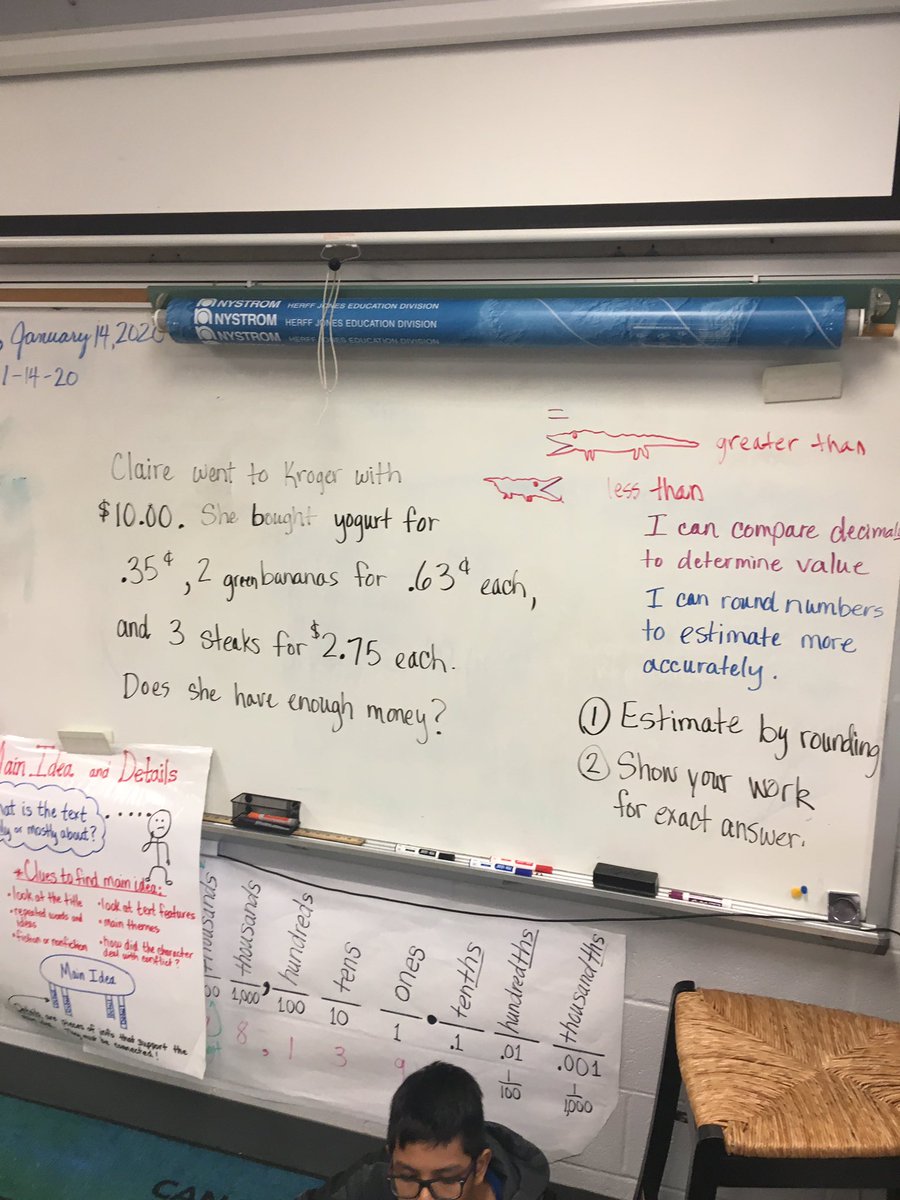 NYSTROM HERFF JONES EDUCATION DIVISION
NYSTROM HERFF JONES EDUCATION DIVISION
NYSTROM HERFF JONES EDUCATION DIVISION
January 14, 2020
1-14-20
=
greater than
less than
Claire went to Kroger with
$10.00. She bought yogurt for
.35¢, 2 green bananas for .63¢ each,
and 3 steaks for $2.75 each.
Does she have enough money?
I can compare decimals
to determine value
I can round numbers
to estimate more
accurately.
① Estimate by rounding
② Show your work
for exact answer.
Main Idea and Details
what is the text
or mostly about?
*Clues to find main idea:
•look at the title
•repeated words and
ideas
•fiction or nonfiction
•look at text features
•main themes
•how did the character
deal with conflict?
Main Idea
Details are pieces of info that support the
must be connected!
thousands , hundreds tens ones . tenths hundredths thousandths
1,000 100 10 1 .1 .01 .001
1/100 1/1,000
8 , 1 3 9
CAN